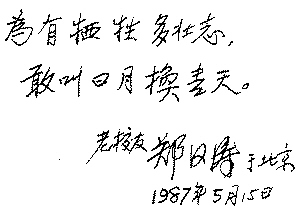 為有牺牲多壮志,
敢叫日月换青天。
老校友 郑汉涛于北京
1987年5月15日